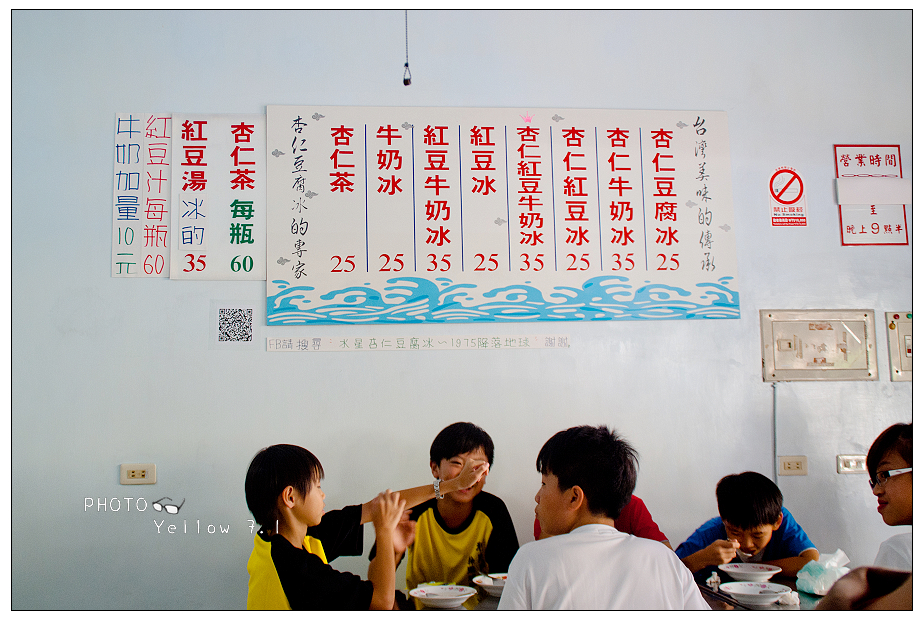 牛奶加量10元
紅豆汁每瓶60
紅豆湯冰的35
杏仁茶每瓶60
杏仁豆腐冰的專家
杏仁茶25
牛奶冰25
紅豆牛奶冰35
紅豆冰25
杏仁紅豆牛奶冰35
杏仁紅豆冰25
杏仁牛奶冰35
杏仁豆腐冰25
台灣美味的傳承
FB請搜尋：水星杏仁豆腐冰~1975降落地球，謝謝。
禁止吸菸
No Smoking
營業時間
至
晚上9點半
PHOTO
Yellow 7.1